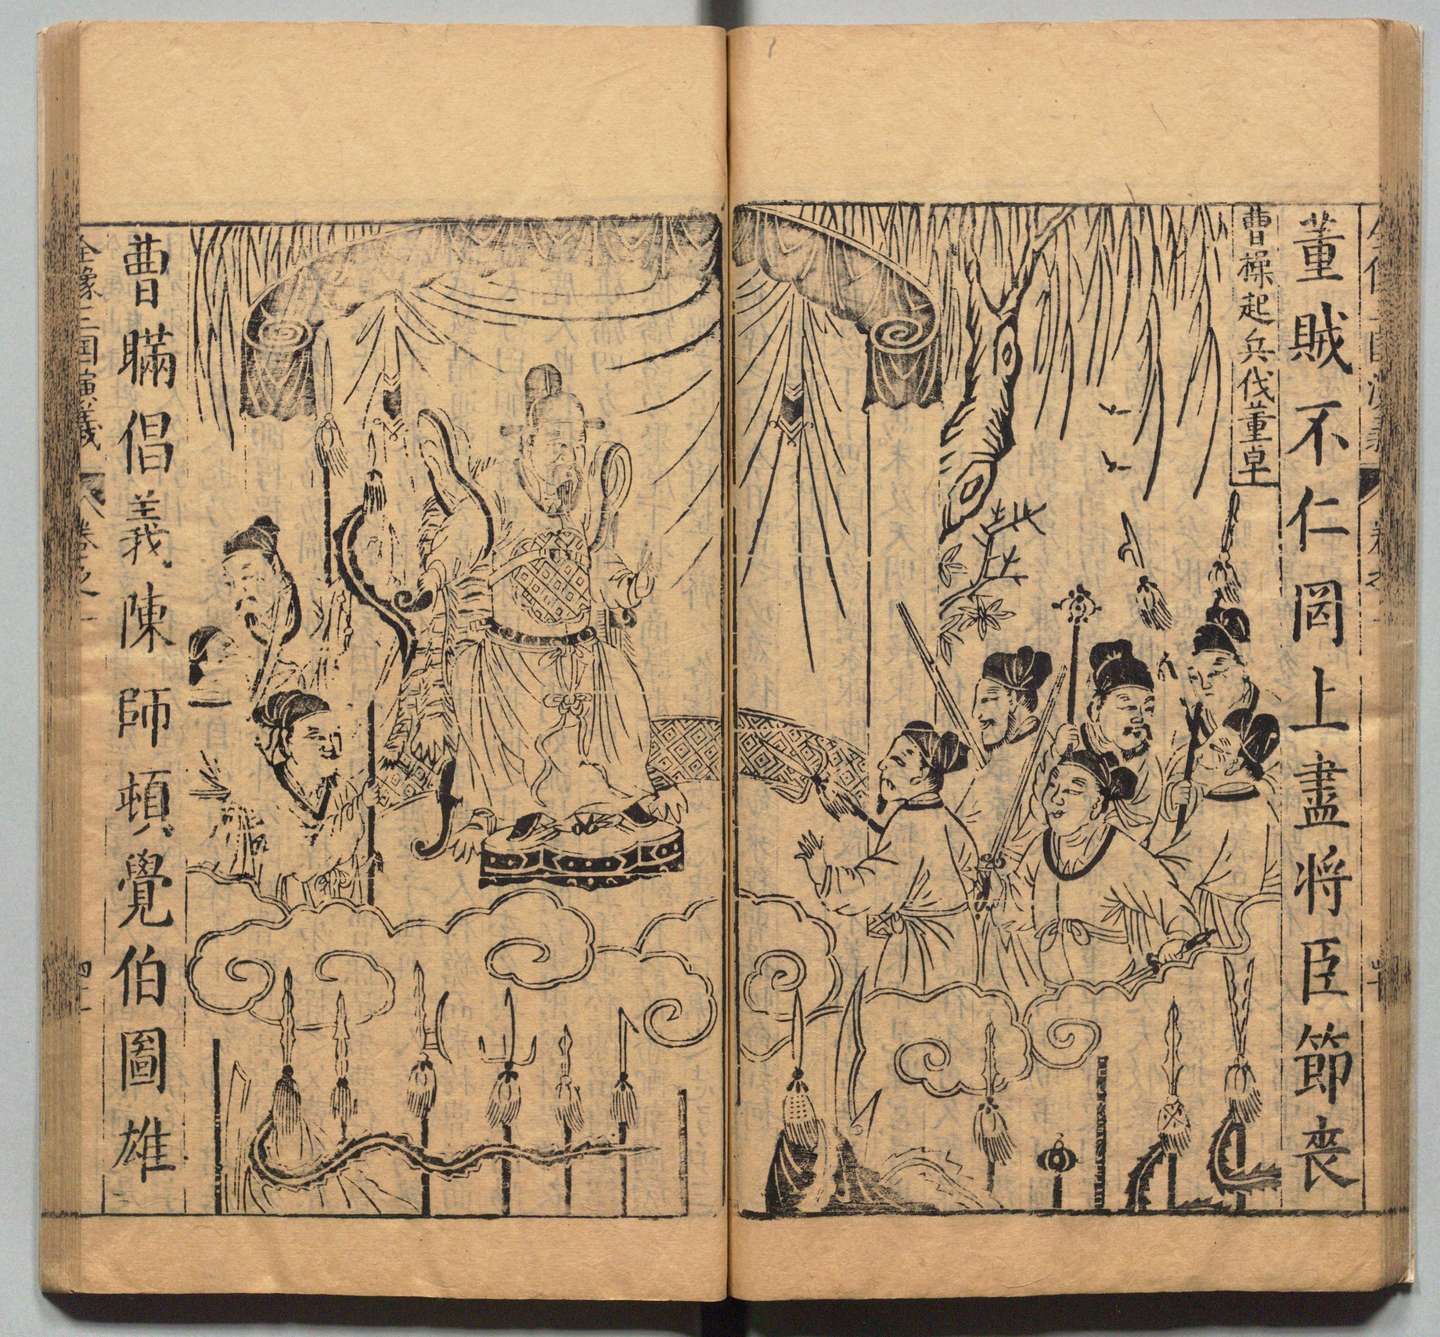 董賊不仁岡上盡將臣節喪
曹操起兵伐董卓
曹瞞倡義陳師頓覺伯圖雄
全像三国演義
卷之一